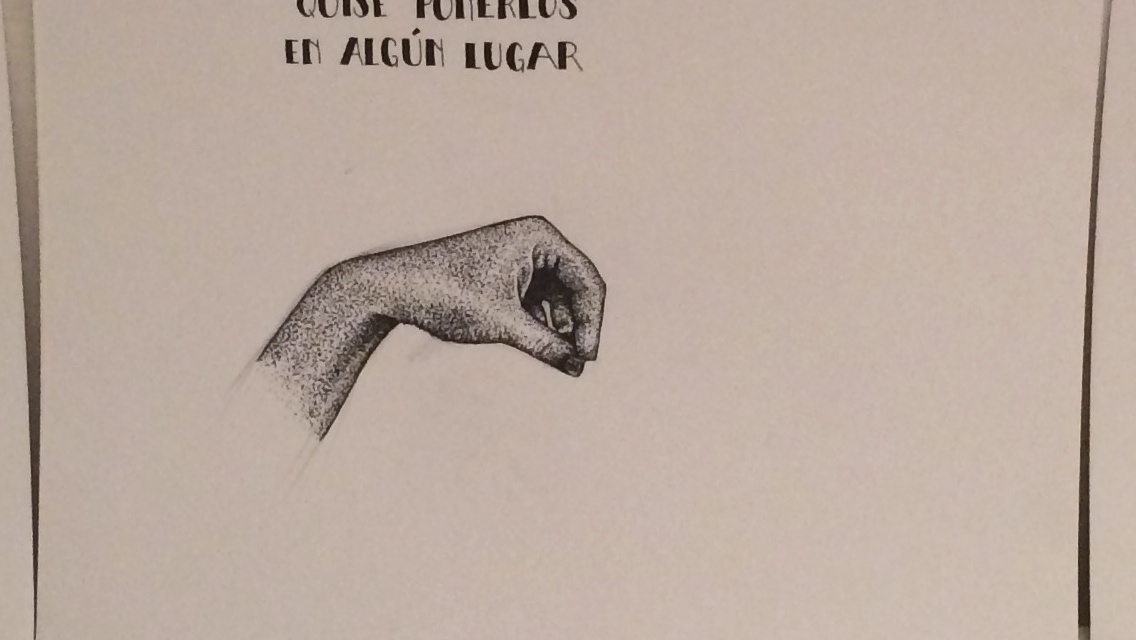 QUISE PONERLOS
EN ALGÚN LUGAR